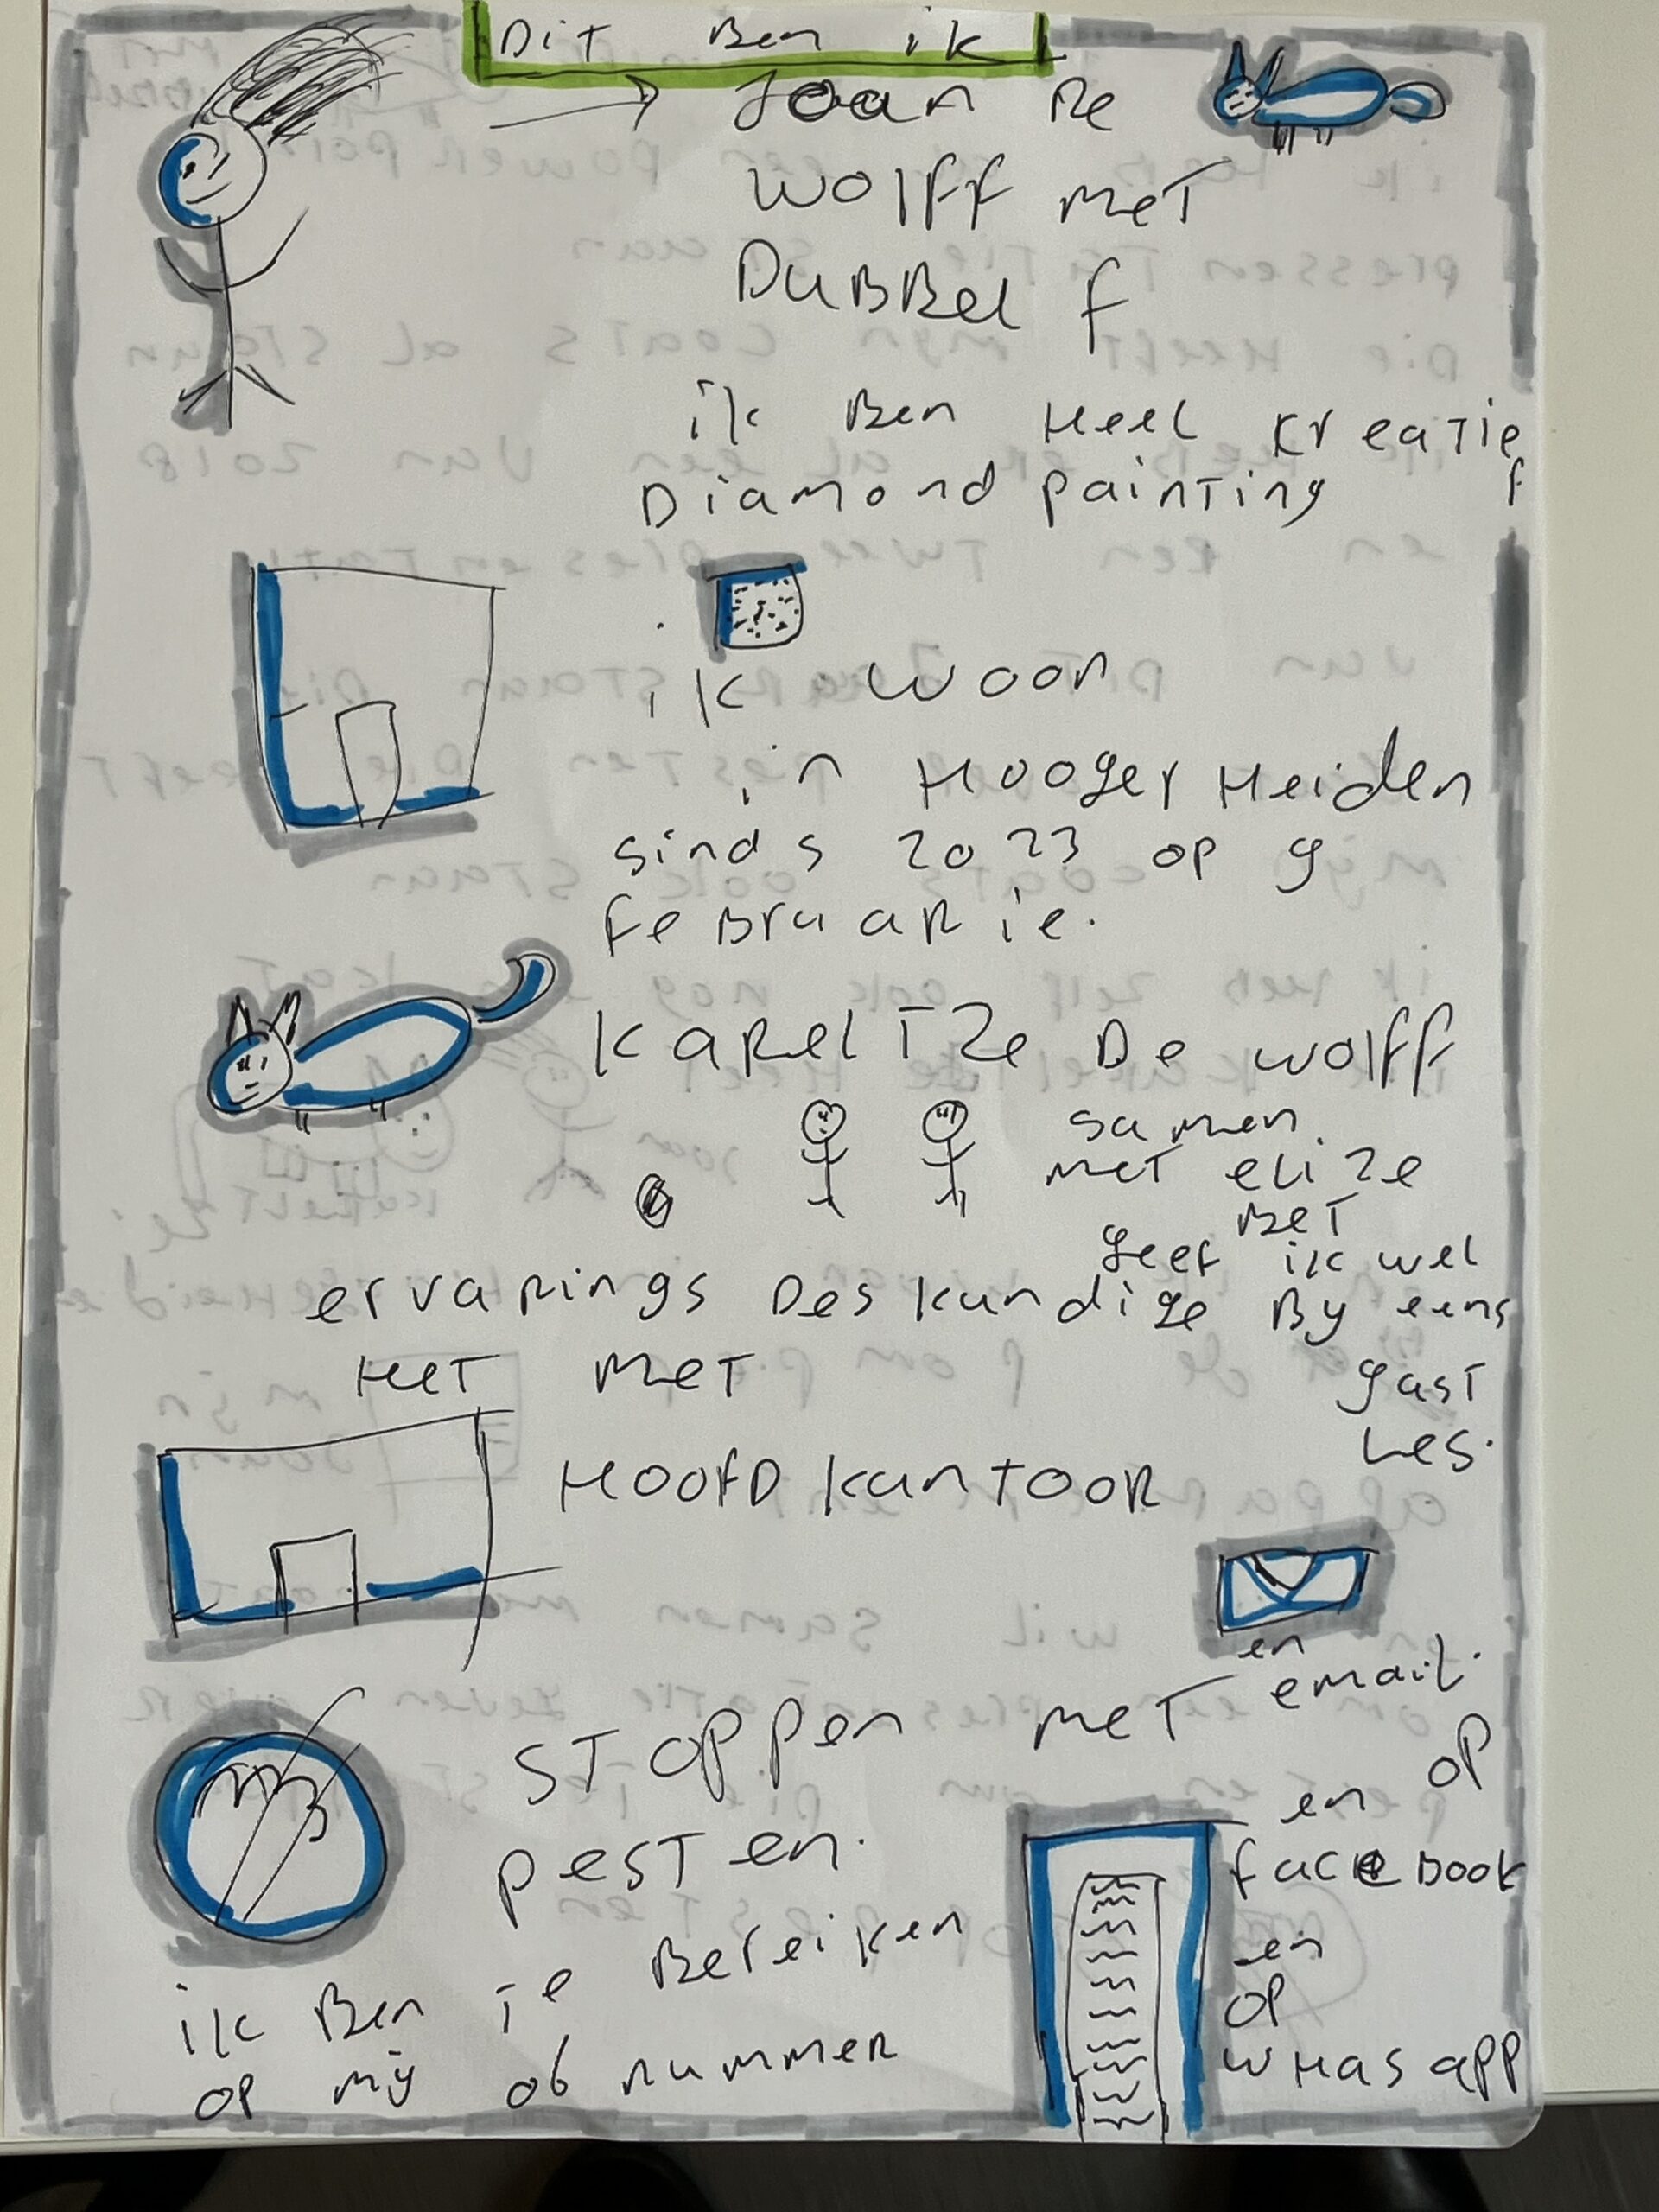 Dit Ben ik
Joan De
Wolff Met
Dubbel f
ik Ben Heel Kreatief
Diamond painting
ik woon
in Hooger Heiden
sinds 2023 op 9
februarie.
Kareltze De Wolff
samen
met elize
Bet
geef ik wel
ervarings Des kundige By eens
Het Met
gast
Les.
Hoofd kantoor
en
email.
stoppen Met
op
pesten.
en
facebook
en
op
whasapp
ik Ben te Bereiken
op mij 06 nummer